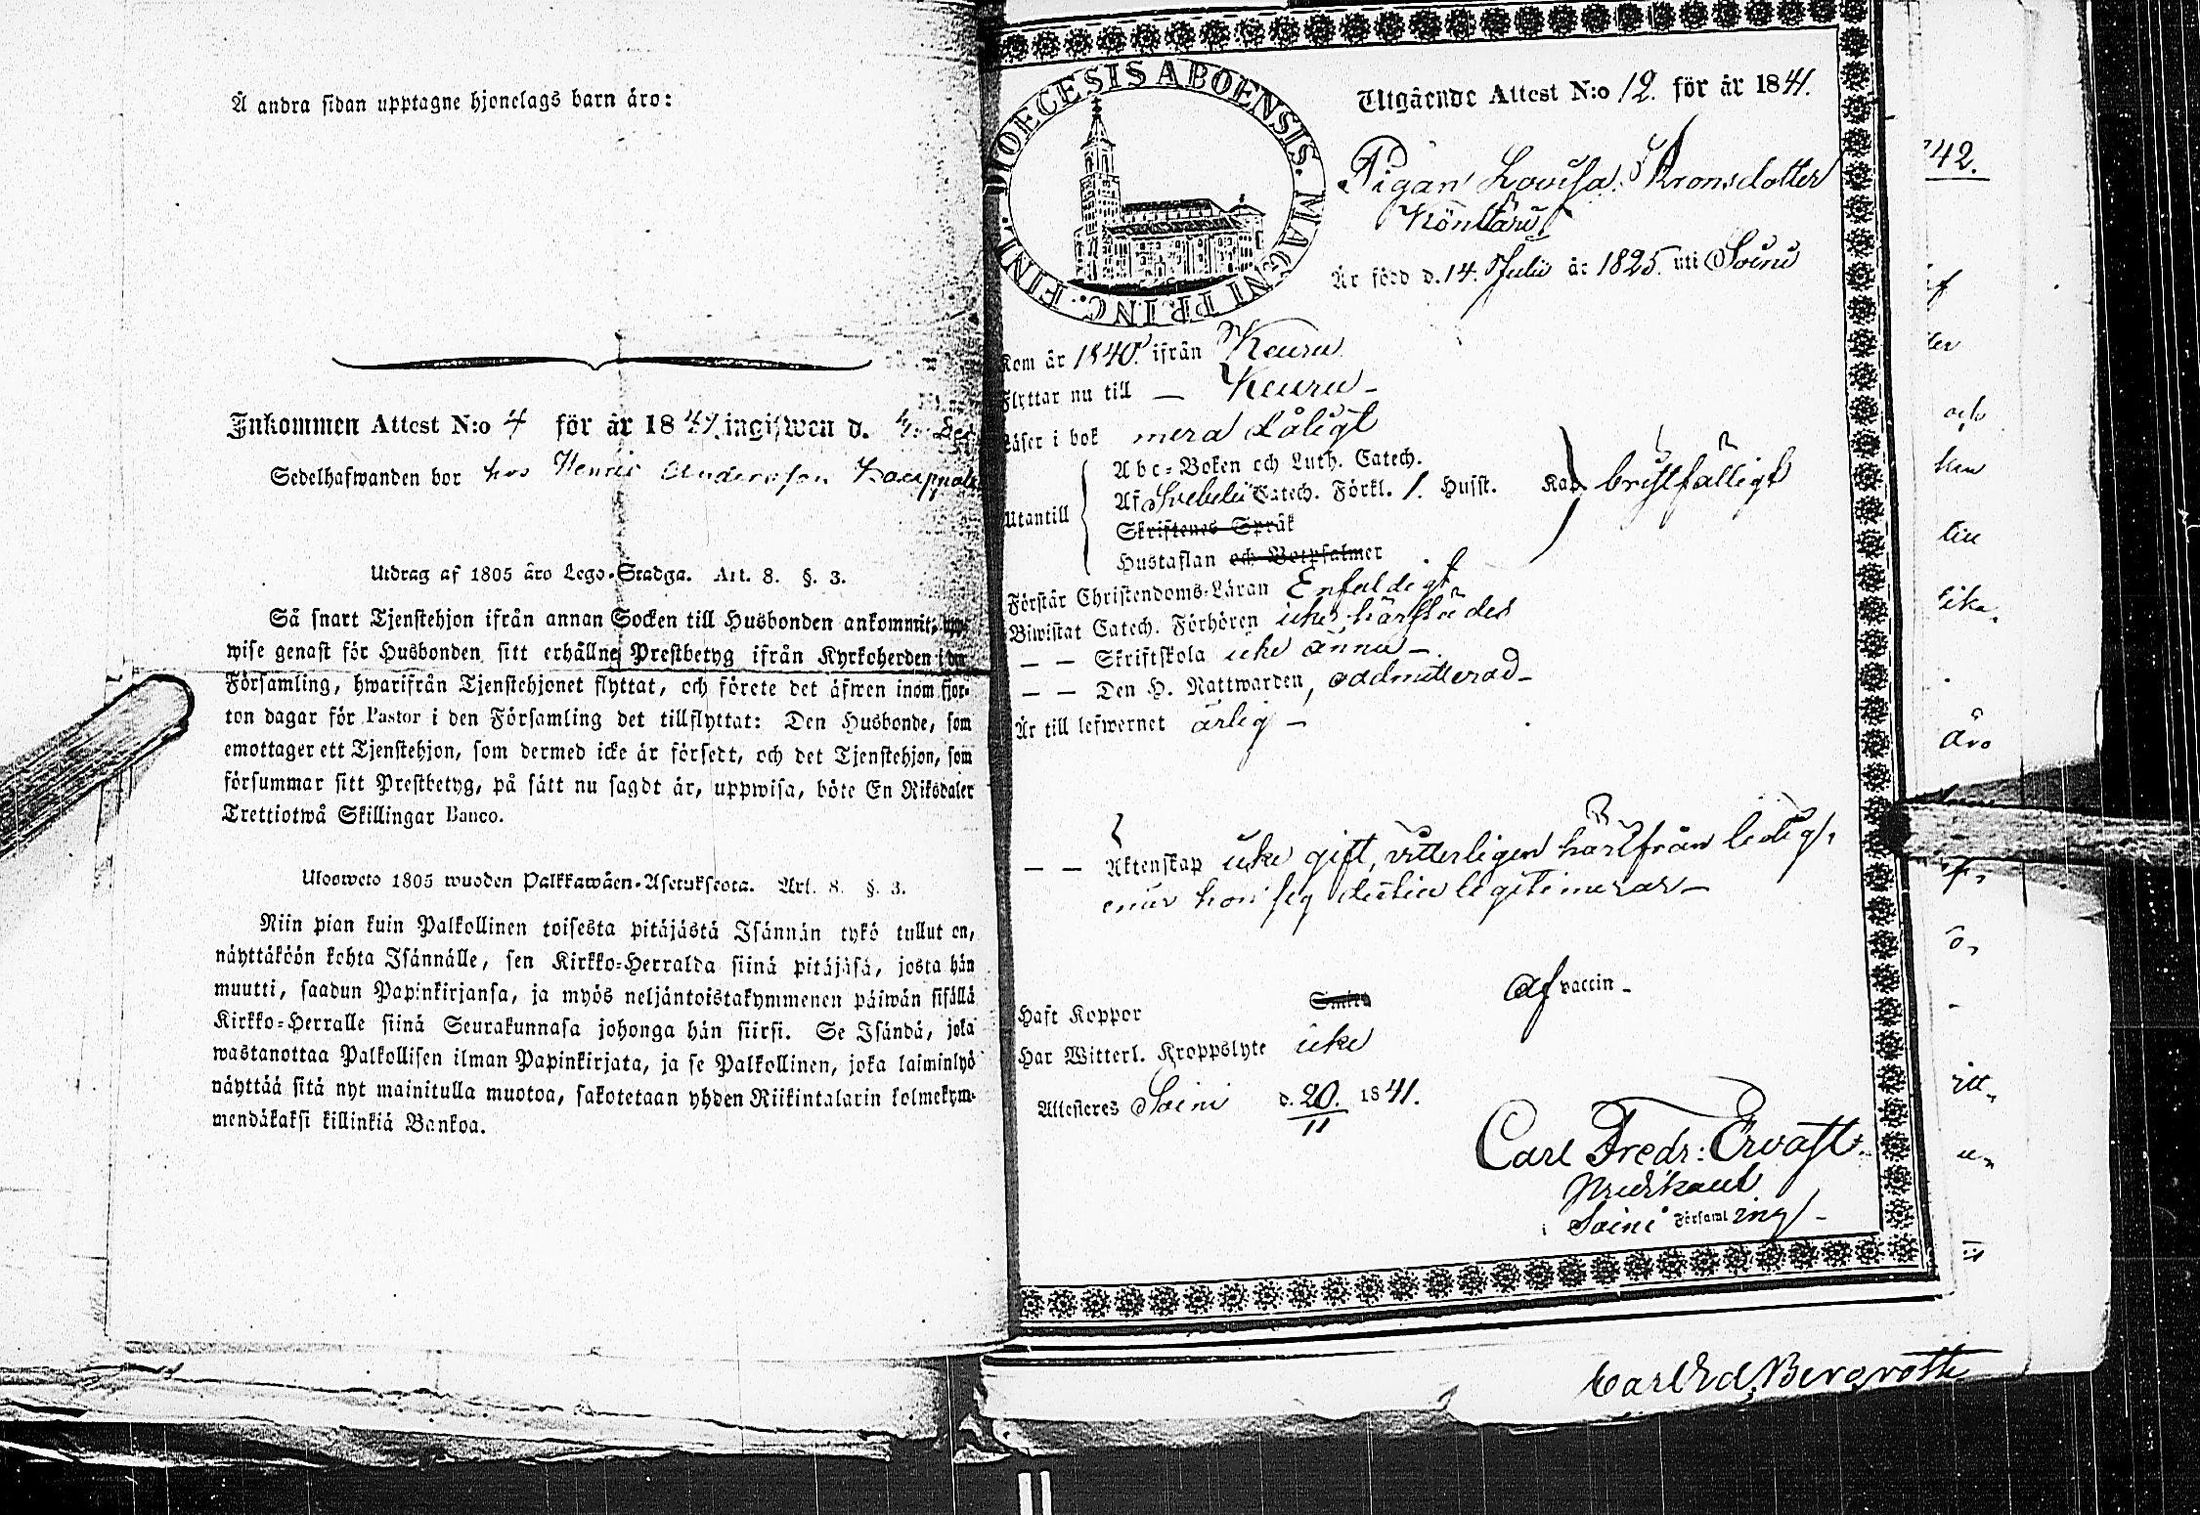 Å andra sidan upptagne hjonelags barn äro:
Inkommen Attest N:o 4 för år 1841 ingifwen d.
Sedelhafwanden bor hos Henric Andersson
Utdrag af 1805 års Lego-Stadga. Art. 8. §. 3.
Så snart Tjenstehjon ifrån annan Socken till Husbonden ankommit, upp-
wise genast för Husbonden sitt erhållne Prestbetyg ifrån Kyrkoherden i den
Församling, hwarifrån Tjenstehjonet flyttat, och förete det äfwen inom fjor-
ton dagar för Pastor i den Församling det tillflyttat: Den Husbonde, som
emottager ett Tjenstehjon, som dermed icke är försedt, och det Tjenstehjon, som
försummar sitt Prestbetyg, på sätt nu sagdt är, uppwisa, böte En Riksdaler
Trettiotwå Skillingar Banco.
Ulosweto 1805 wuoden Palkkawäen-Asetuksesta. Art. 8. §. 3.
Niin pian kuin Palkollinen toisesta pitäjästä Isännän tykö tullut on,
näyttäköön kohta Isännälle, sen Kirkko-Herralda siinä pitäjäsä, josta hän
muutti, saadun Papinkirjansa, ja myös neljäntoistakymmenen päiwän sisällä
Kirkko-Herralle siinä Seurakunnasa johonga hän siirsi. Se Isändä, joka
wastanottaa Palkollisen ilman Papinkirjata, ja se Palkollinen, joka laiminlyö
näyttää sitä nyt mainitulla muotoa, sakotetaan yhden Riikintalarin kolmekym-
mendäkaksi killinkiä Bankoa.
DIOECESIS ABOENSIS. MAGNI PRINC. FINL.
Utgående Attest N:o 12. för år 1841.
Pigan Lovisa Aronsdotter
Är född d. 14. Julii år 1825. uti Soini
Kom år 1840. ifrån Keuru
Flyttar nu till — Keuru —
Läser i bok mera dåligt
Abc-Boken och Luth. Catech.
Af Svebelii Catech. Förkl. 1. Husst. Kap bristfälligt
Utantill
Skriftenes Språk
Hustaflan och Botpsalmer
Förstår Christendoms-Läran Enfaldigt
Biwistat Catech. Förhören icke härstädes
— — Skriftskola icke ännu —
— — Den H. Nattwarden, oadmitterad —
Är till lefwernet ärlig —
— — Äktenskap icke gift, vitterligen härifrån ledig,
om hon sig dädan legitimerar —
Haft Koppor Smitt af vaccin —
Har Witterl. Kroppslyte icke
Attesteres Soini d. 20./11 1841.
Carl Fredr: Ervast.
Predikant
i Soini Församling —
Carl Ed. Bergroth
42.
och
äro